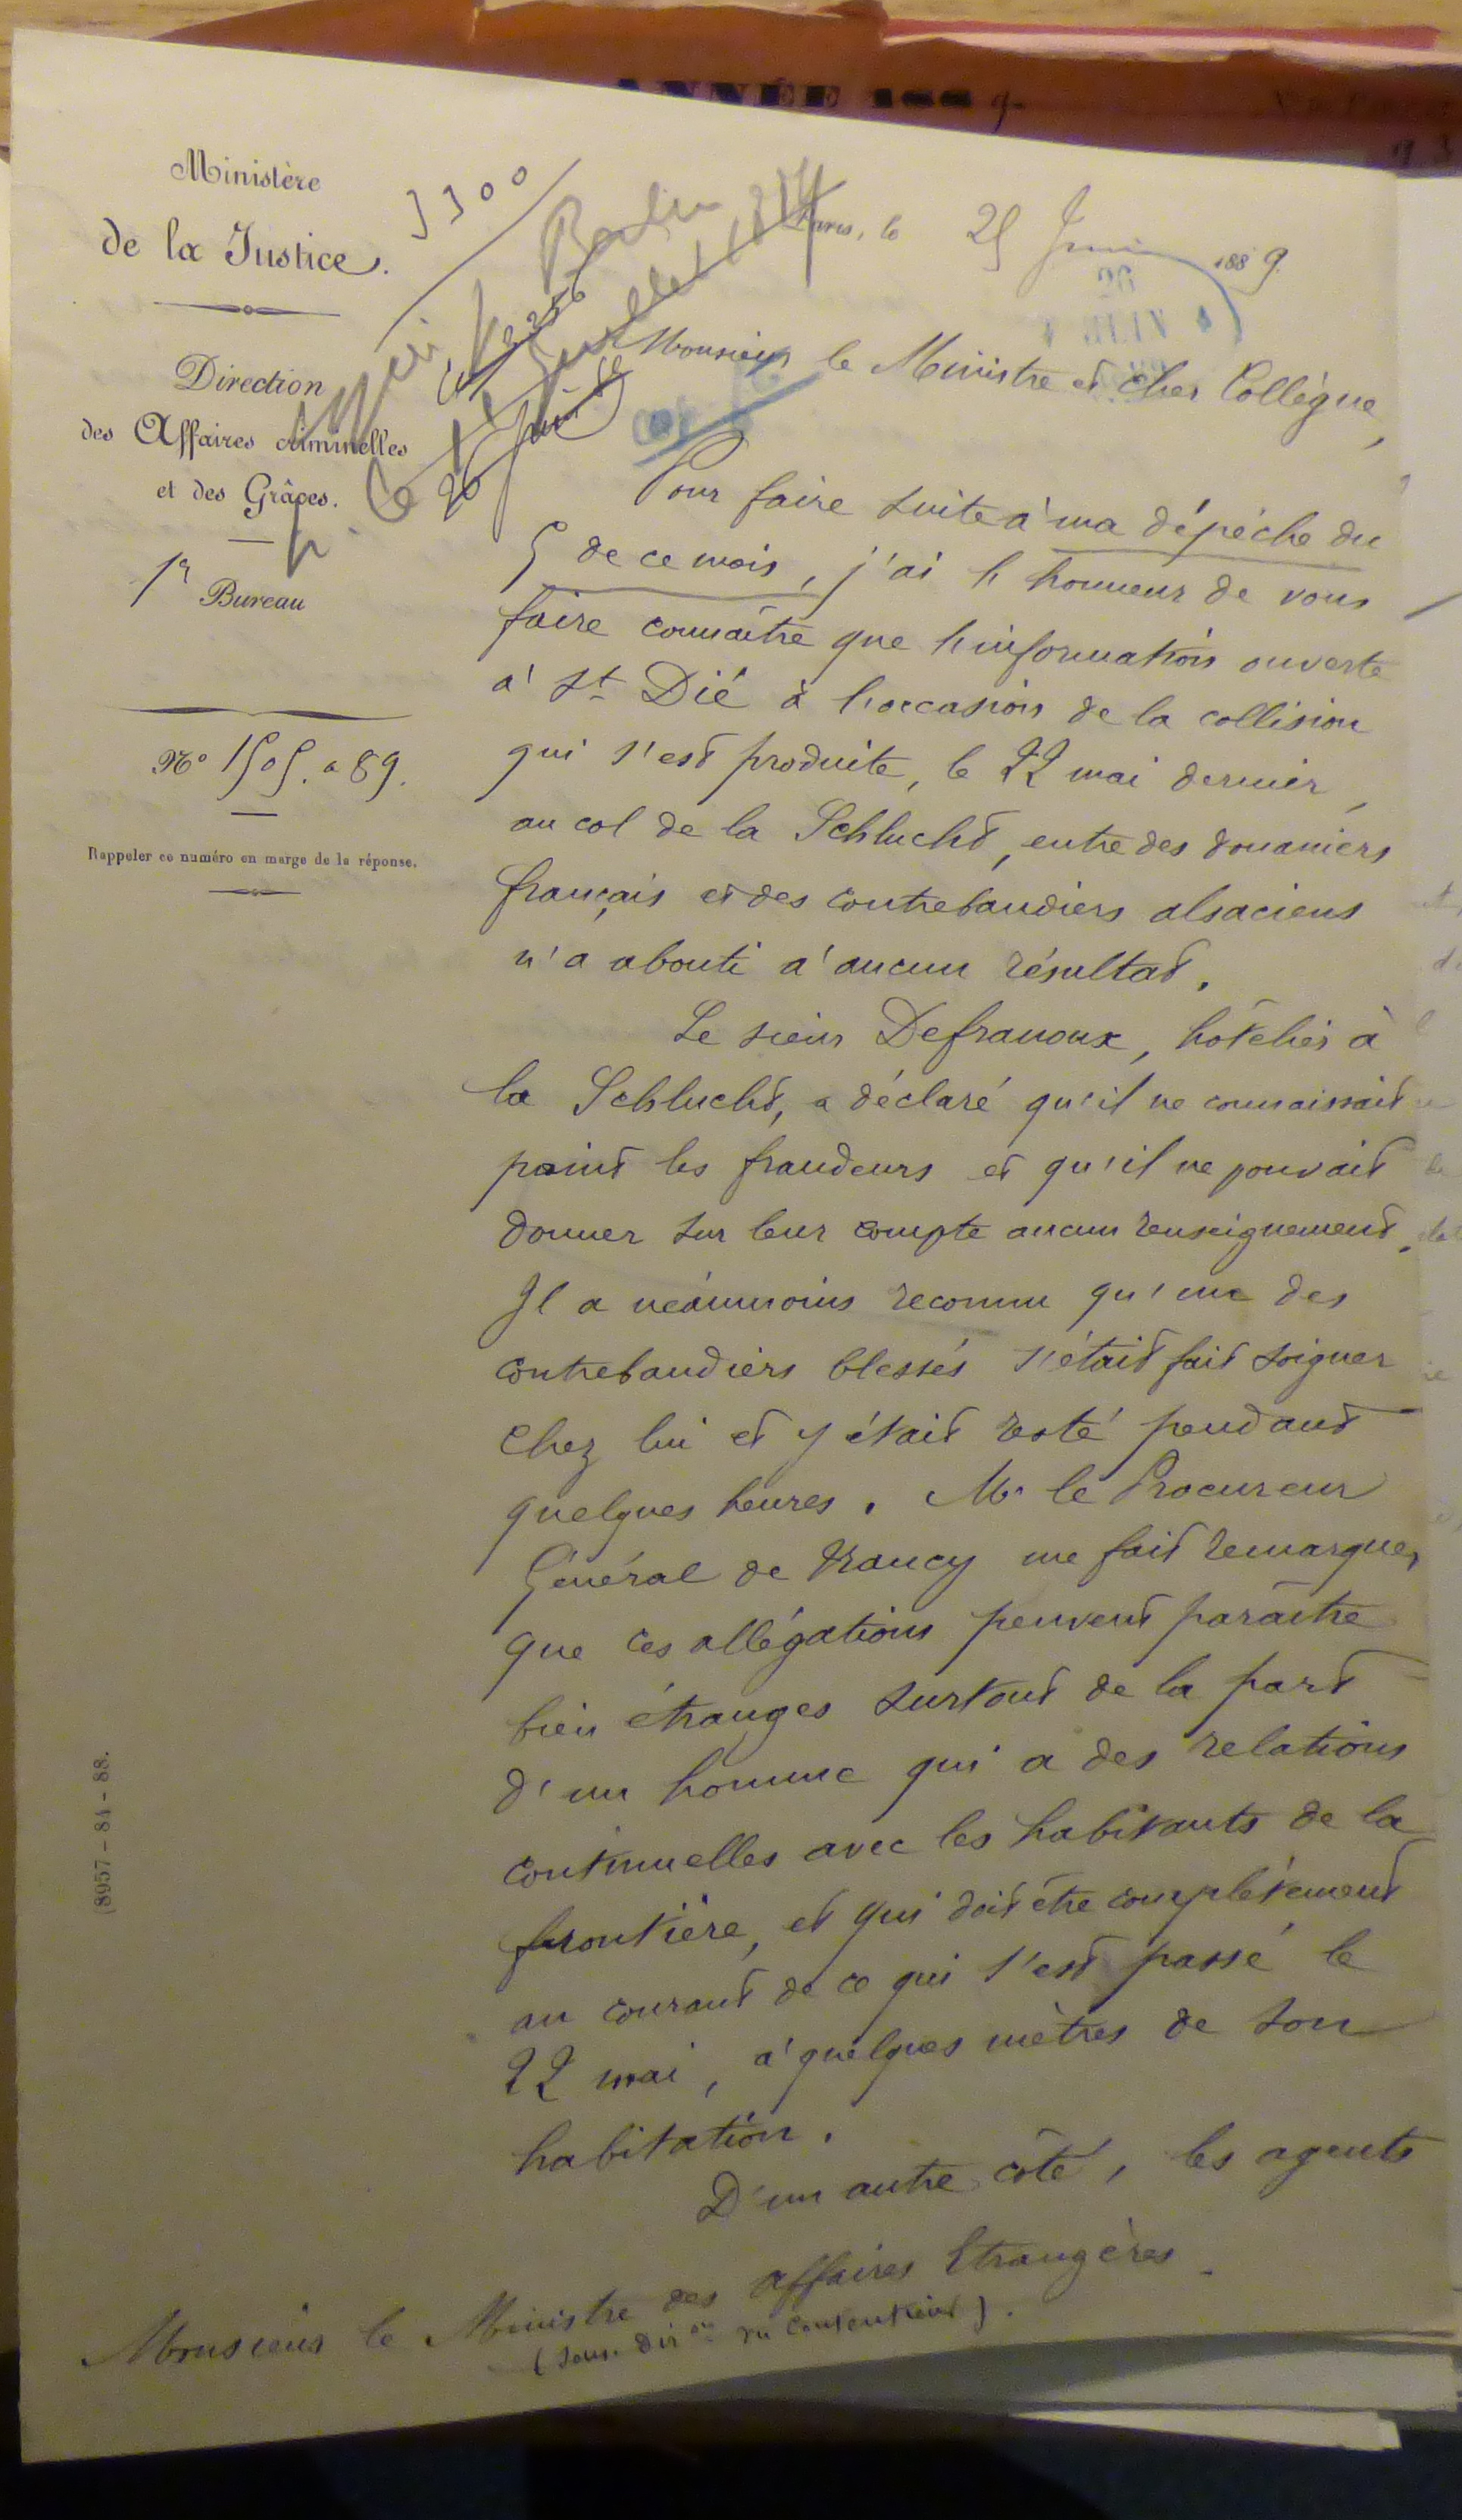 ANNÉE 1889
Ministère
de la Justice.
Direction
des Affaires criminelles
et des Grâces.
1er Bureau
No 1505. a 89.
Rappeler ce numéro en marge de la réponse.
(8957 – 84 – 88.
3300
Berlin
Paris, le 25 Juin 1889.
Monsieur le Ministre et cher Collègue,
Pour faire suite à ma dépêche du
5 de ce mois, j'ai l'honneur de vous
faire connaître que l'information ouverte
à St Dié à l'occasion de la collision
qui s'est produite, le 22 mai dernier,
au col de la Schlucht, entre des douaniers
français et des contrebandiers alsaciens
n'a abouti à aucun résultat.
Le sieur Defranoux, hôtelier à
la Schlucht, a déclaré qu'il ne connaissait
point les fraudeurs et qu'il ne pouvait
donner sur leur compte aucun renseignement.
Il a néanmoins reconnu qu'un des
contrebandiers blessés s'était fait soigner
chez lui et y était resté pendant
quelques heures. Mr le Procureur
Général de Nancy me fait remarquer
que ces allégations peuvent paraître
bien étranges surtout de la part
d'un homme qui a des relations
continuelles avec les habitants de la
frontière, et qui doit être complètement
au courant de ce qui s'est passé le
22 mai, à quelques mètres de son
habitation.
D'un autre côté, les agents
Monsieur le Ministre des affaires Etrangères.
(Sous. Diron du Contentieux).